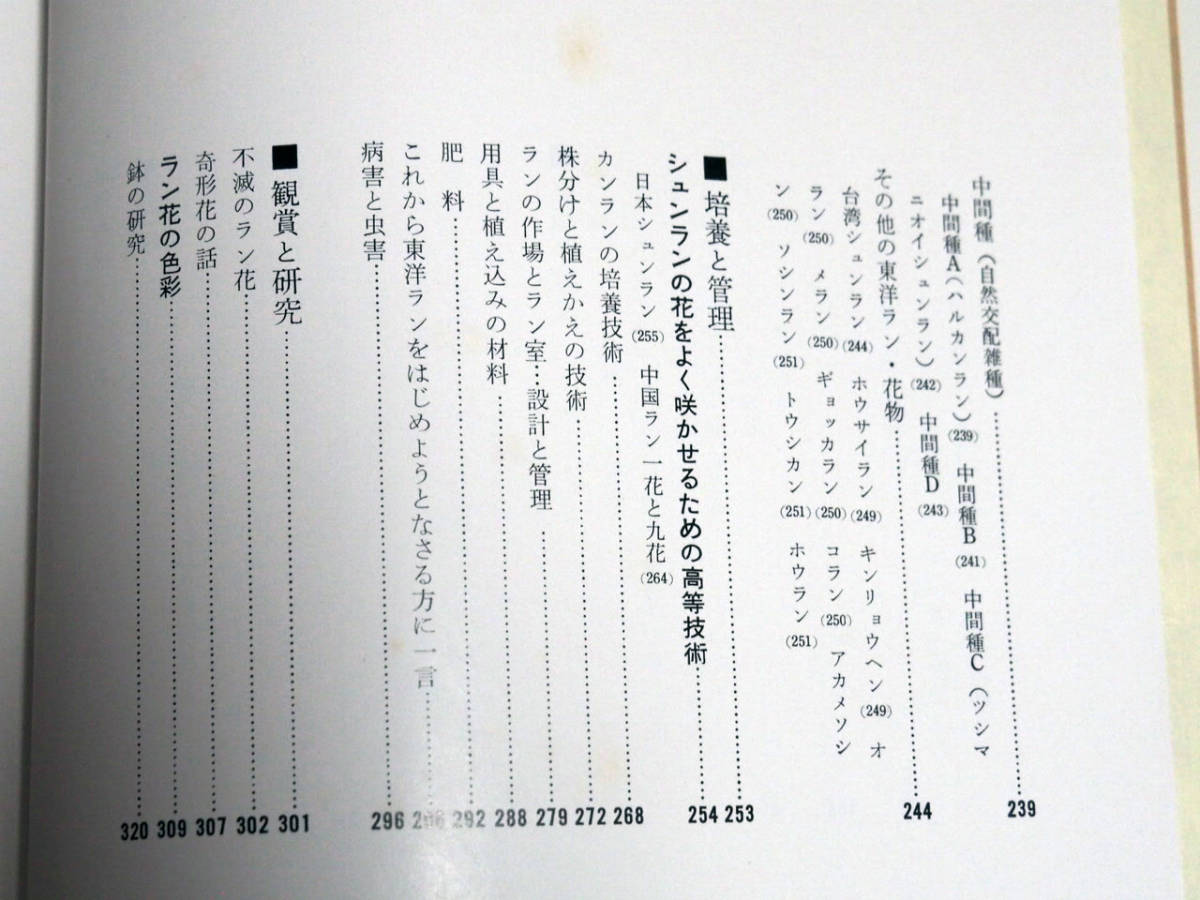 中間種（自然交配雑種）……239
中間種A（ハルカンラン）(239) 中間種B (241) 中間種C（ツシマ
ニオイシュンラン）(242) 中間種D (243)
その他の東洋ラン・花物……244
台湾シュンラン (244) ホウサイラン (249) キンリョウヘン (249) オ
ラン (250) メラン (250) ギョッカラン (250) コラン (250) アカメソシ
ン (250) ソシンラン (251) トウシカン (251) ホウラン (251)
■培養と管理……253
シュンランの花をよく咲かせるための高等技術……254
日本シュンラン (255) 中国ラン一花と九花 (264)
カンランの培養技術……268
株分けと植えかえの技術……272
ランの作場とラン室…設計と管理……279
用具と植え込みの材料……288
肥料……292
これから東洋ランをはじめようとなさる方に一言……
病害と虫害……296
■観賞と研究……301
不滅のラン花……302
奇形花の話……307
ラン花の色彩……309
鉢の研究……320